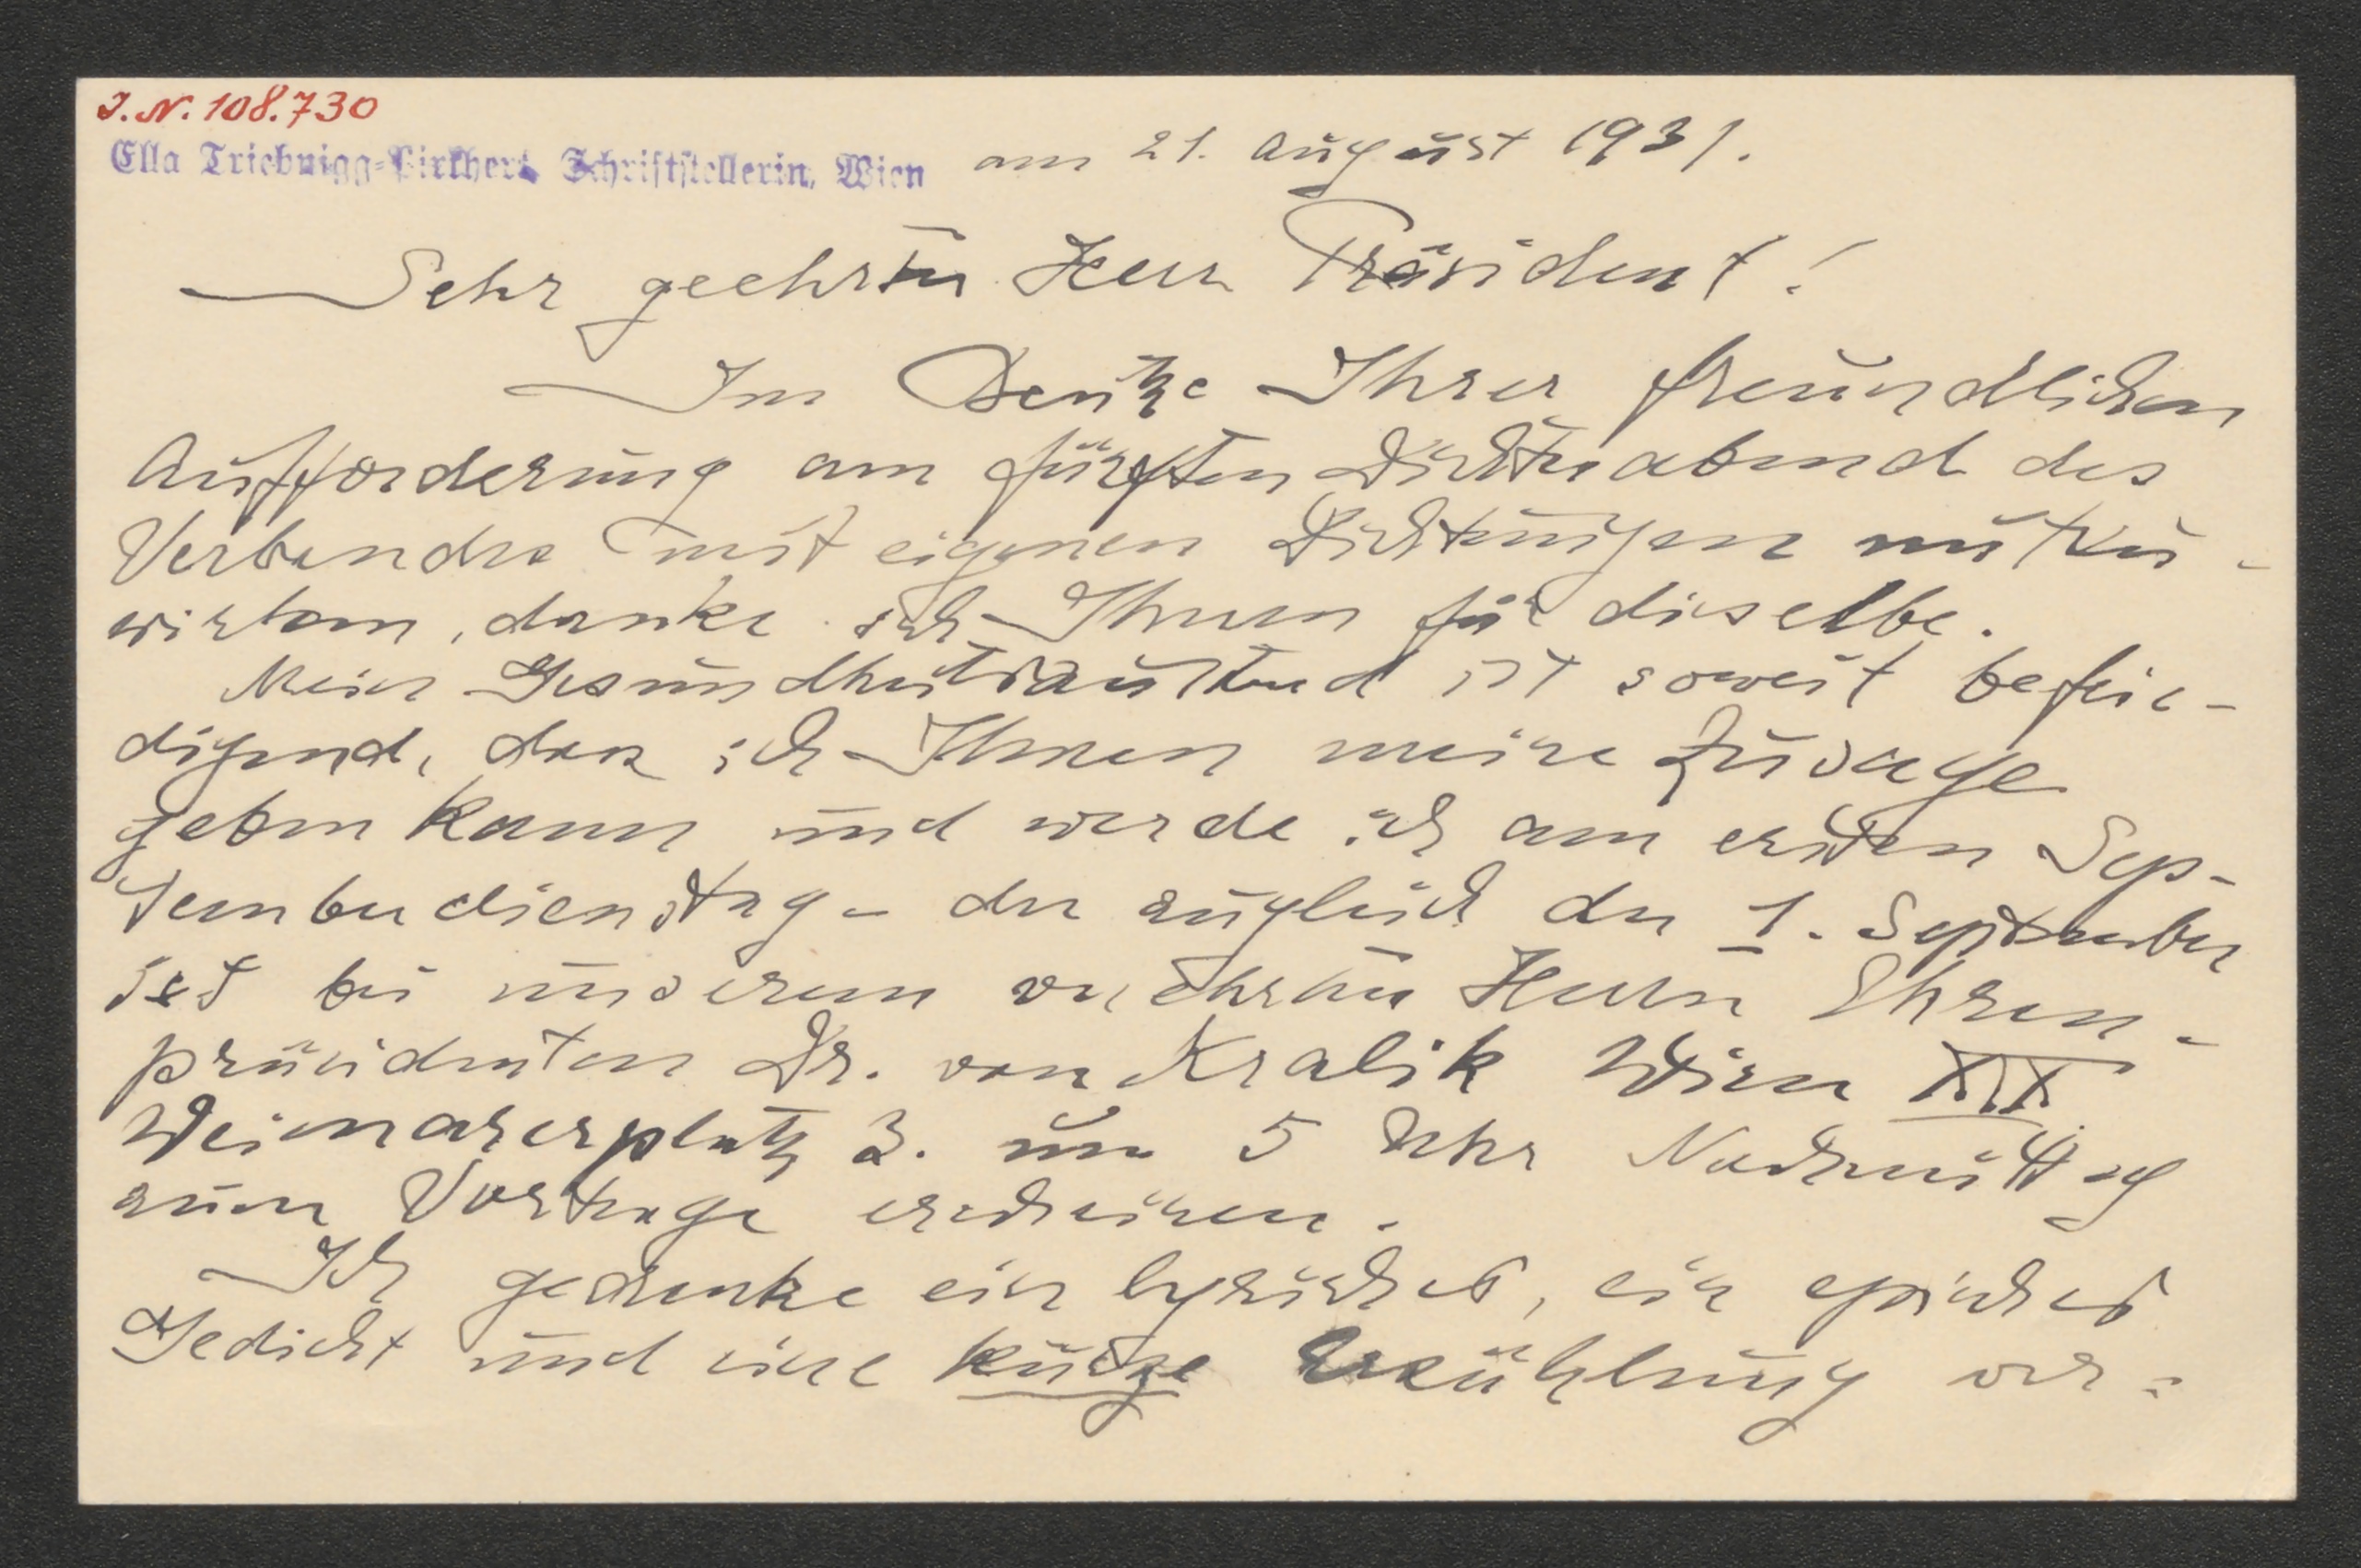 I.N. 108.730
Ella Triebnigg-Pirkhert Schriftstellerin, Wien am 21. August 1931.
Sehr geehrter Herr Präsident!
Im Besitze Ihrer freundlichen
Aufforderung am fünften Dichterabend des
Verbandes mit eigenen Dichtungen mitzu-
wirken, danke ich Ihnen für dieselbe.
Mein Gesundheitszustand ist soweit befrie-
digend, dass ich Ihnen meine Zusage
geben kann und werde ich am ersten Sep-
temberdienstag - der zugleich der 1. September
ist bei unserem verehrten Herrn Ehren-
präsidenten Dr. von Kralik Wien XIX
Weimarerplatz 3. um 5 Uhr Nachmittag
zum Vortrage erscheinen.
Ich gedenke ein lyrisches, ein episches
Gedicht und eine kurze Erzählung vor=